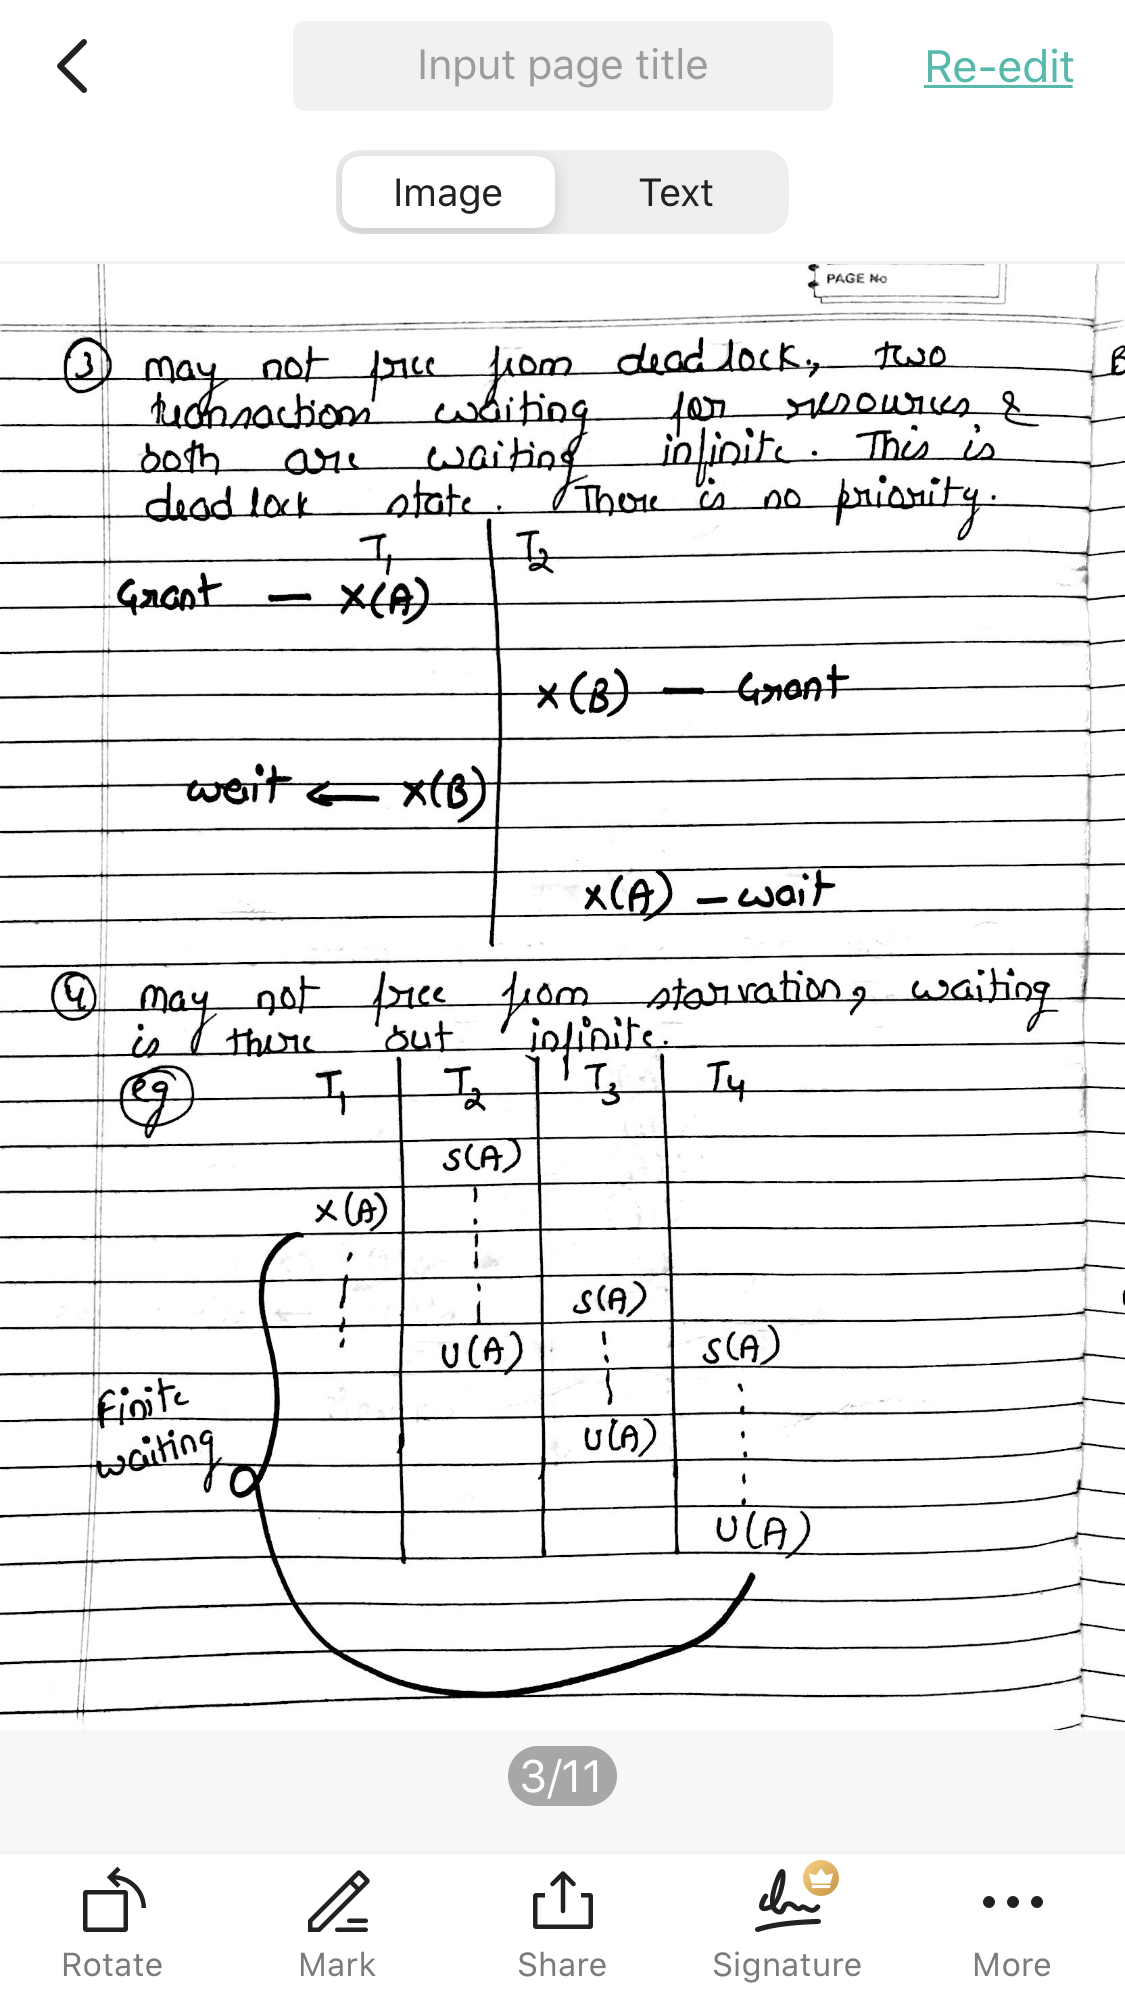 Input page title
Re-edit
Image Text
PAGE No
③ may not free from deadlock, two
transactions waiting for resources &
both are waiting infinite. This is
deadlock state. There is no priority.
T₁ T₂
Grant — X(A)
X(B) — Grant
wait ← X(B)
X(A) — wait
④ may not free from starvation, waiting
is there but infinite.
eg T₁ T₂ T₃ T₄
S(A)
X(A)
S(A)
U(A) S(A)
Finite
waiting
U(A)
U(A)
3/11
Rotate Mark Share Signature More